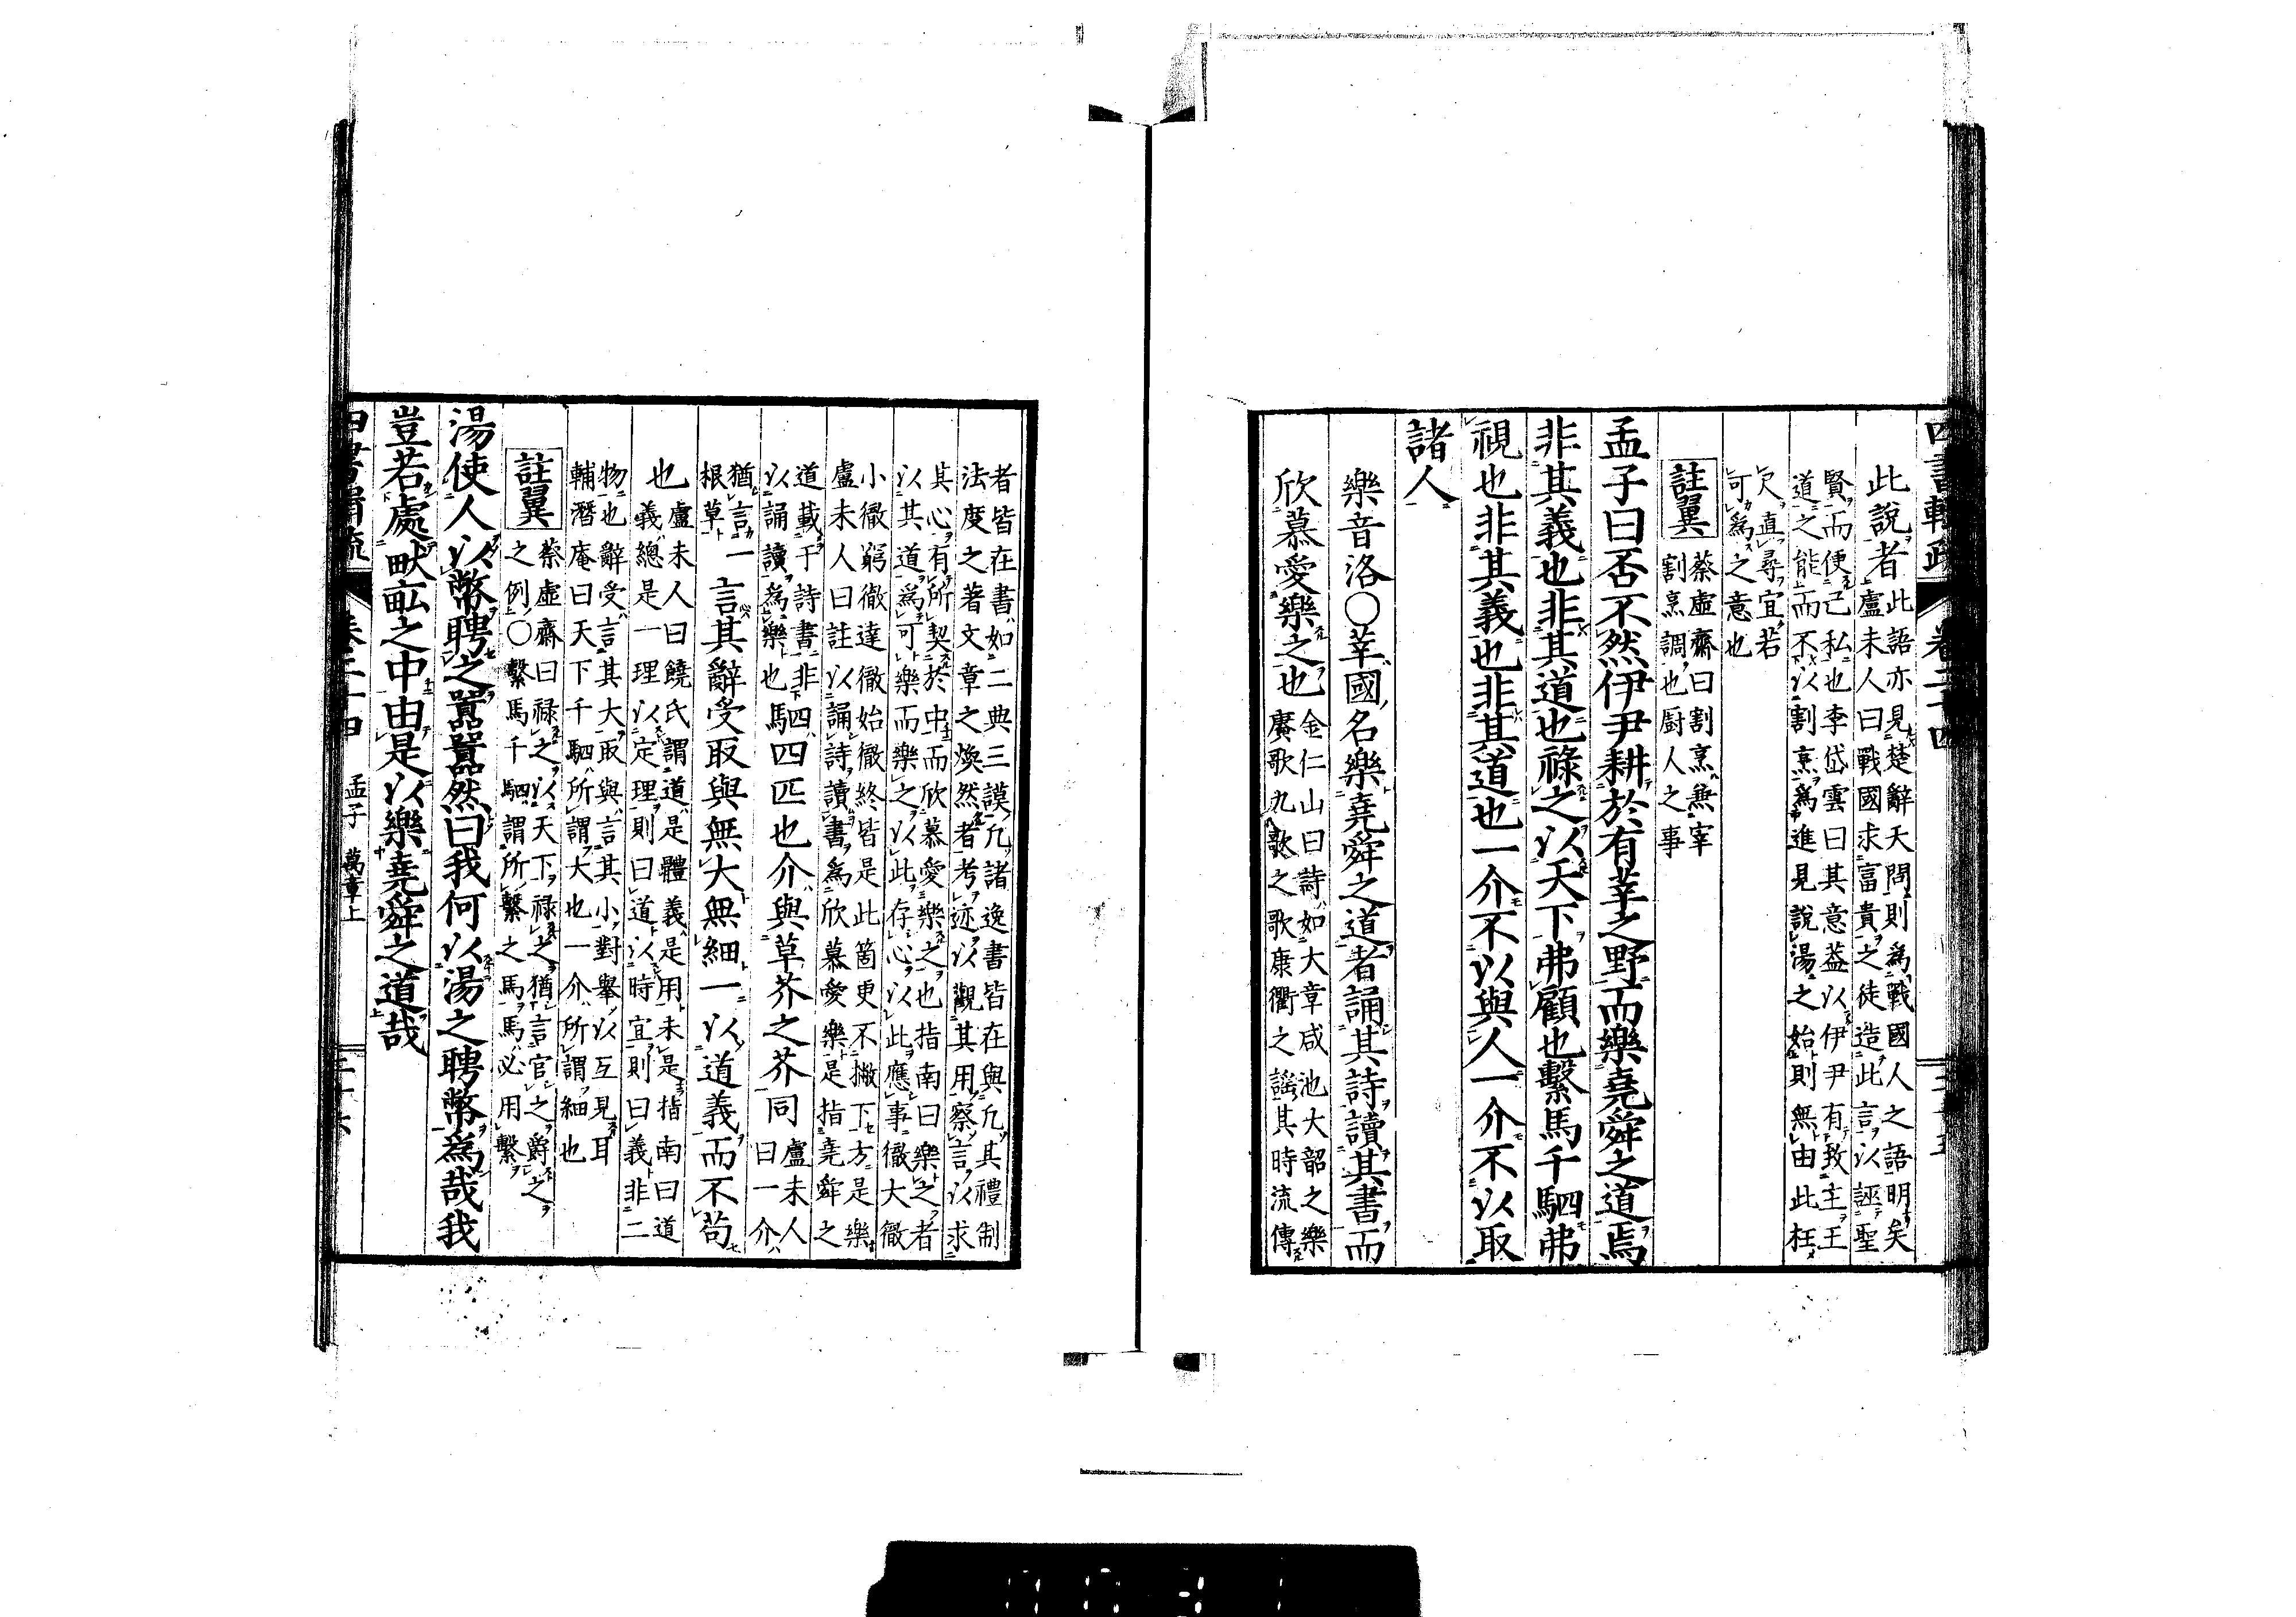 四書輯疏 卷二十四 三十五
此說者
此語亦見楚辭天問則爲戰國人之語明矣
盧未人曰戰國求富貴之徒造此言以誣聖
賢而便己私也李岱雲曰其意葢以伊尹有致主王
道之能而不以割烹爲進見說湯之始則無由此枉
尺直尋宜若
可爲之意也
註翼
蔡虛齋曰割烹兼宰
割烹調也厨人之事
孟子曰否不然伊尹耕於有莘之野而樂堯舜之道焉
非其義也非其道也祿之以天下弗顧也繫馬千駟弗
視也非其義也非其道也一介不以與人一介不以取
諸人
樂音洛○莘國名樂堯舜之道者誦其詩讀其書而
欣慕愛樂之也
金仁山曰詩如大章咸池大韶之樂
賡歌九歌之歌康衢之謠其時流傳
者皆在書如二典三謨凡諸逸書皆在與凡其禮制
法度之著文章之煥然者考迹以觀其用察言以求
其心有所契於中而欣慕愛樂之也指南曰樂之者
以其道爲可樂而樂之以此存心以此應事徹大徹
小徹窮徹達徹始徹終皆是此箇更不撇下方是樂
盧未人曰註以誦詩讀書爲欣慕愛樂是指堯舜之
道載于詩書非
以誦讀爲樂也
駟四匹也介與草芥之芥同
盧未人
曰一介
猶言一
根草
言其辭受取與無大無細一以道義而不苟
也
盧未人曰饒氏謂道是體義是用未是指南曰道
義總是一理以定理則曰道以時宜則曰義非二
物也辭受言其大取與言其小對舉以互見耳
輔潛庵曰天下千駟所謂大也一介所謂細也
註翼
蔡虛齋曰祿之以天下祿之猶言官之爵之
之例○繫馬千駟謂所繫之馬馬必用繫
湯使人以幣聘之囂囂然曰我何以湯之聘幣爲哉我
豈若處畎畝之中由是以樂堯舜之道哉
四書輯疏 卷二十四 孟子 萬章上 三十六